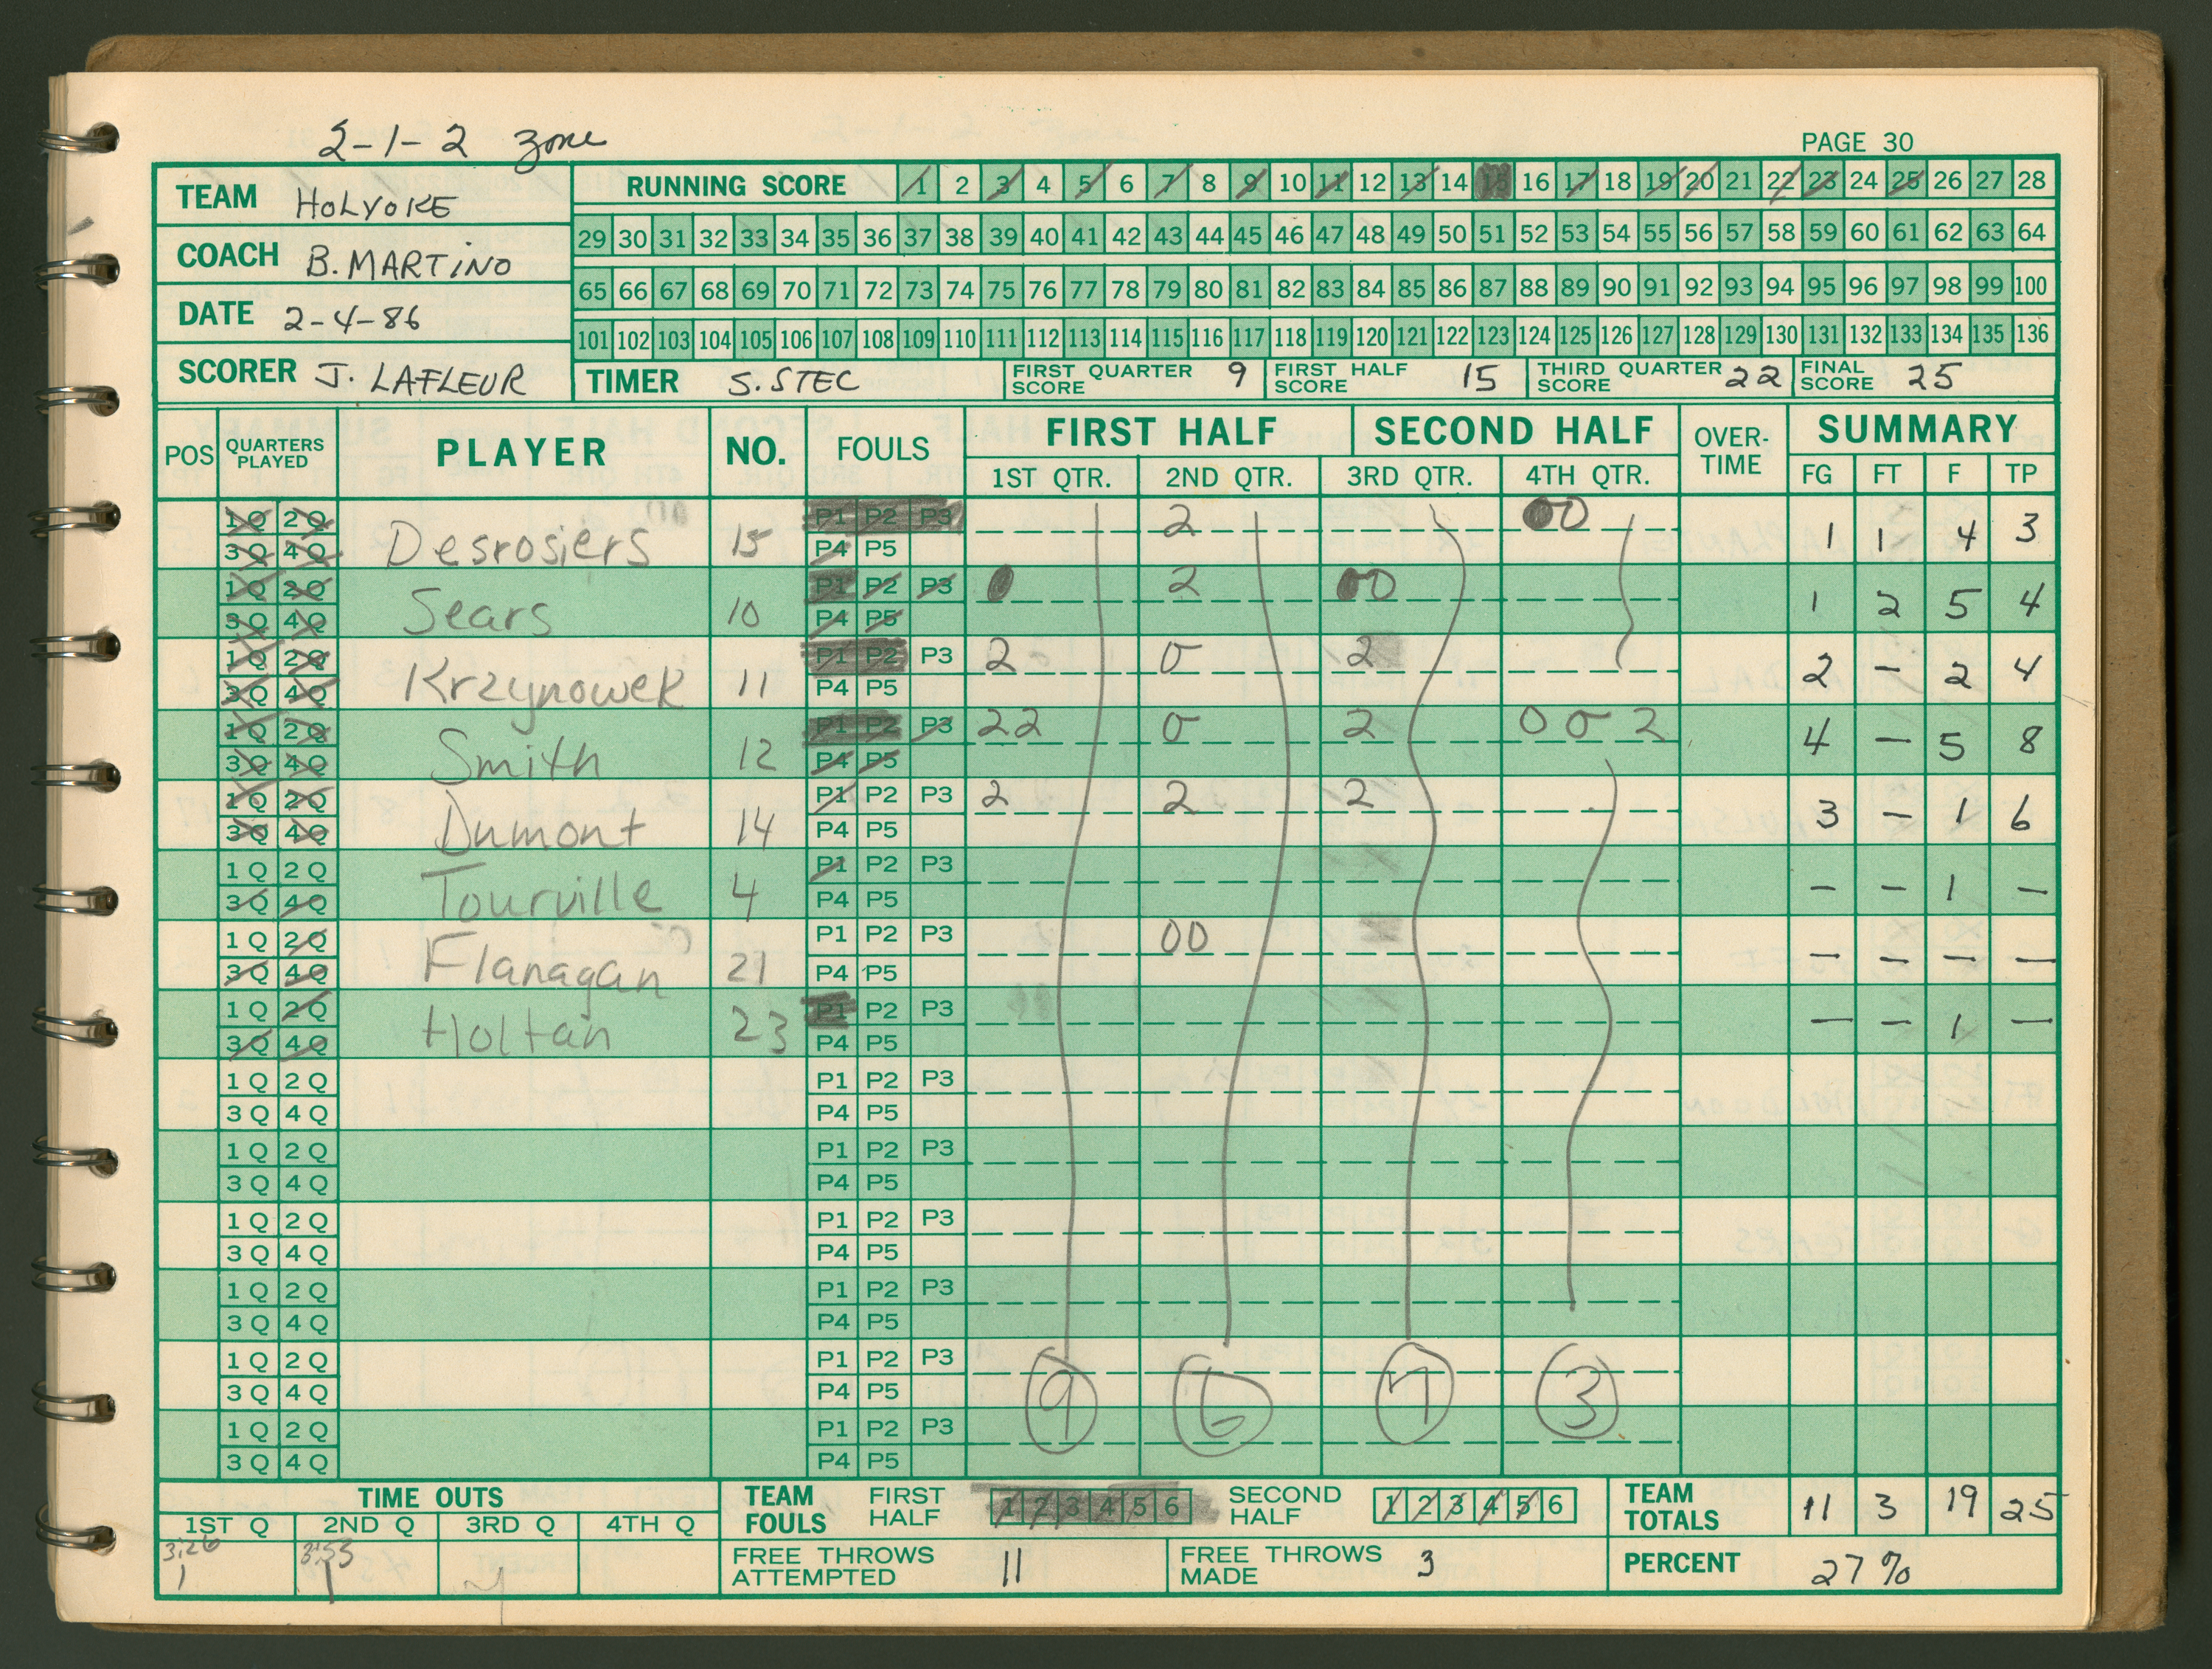 2-1-2 zone
PAGE 30
TEAM HOLYOKE
COACH B. MARTINO
DATE 2-4-86
SCORER J. LAFLEUR
RUNNING SCORE 1 2 3 4 5 6 7 8 9 10 11 12 13 14 15 16 17 18 19 20 21 22 23 24 25 26 27 28
29 30 31 32 33 34 35 36 37 38 39 40 41 42 43 44 45 46 47 48 49 50 51 52 53 54 55 56 57 58 59 60 61 62 63 64
65 66 67 68 69 70 71 72 73 74 75 76 77 78 79 80 81 82 83 84 85 86 87 88 89 90 91 92 93 94 95 96 97 98 99 100
101 102 103 104 105 106 107 108 109 110 111 112 113 114 115 116 117 118 119 120 121 122 123 124 125 126 127 128 129 130 131 132 133 134 135 136
TIMER S. STEC FIRST QUARTER SCORE 9 FIRST HALF SCORE 15 THIRD QUARTER SCORE 22 FINAL SCORE 25
POS QUARTERS PLAYED PLAYER NO. FOULS FIRST HALF SECOND HALF OVER-TIME SUMMARY
1ST QTR. 2ND QTR. 3RD QTR. 4TH QTR. FG FT F TP
1Q 2Q P1 P2 P3 2 00
3Q 4Q Desrosiers 15 P4 P5 1 1 4 3
1Q 2Q P1 P2 P3 0 2 00
3Q 4Q Sears 10 P4 P5 1 2 5 4
1Q 2Q P1 P2 P3 2 0 2
3Q 4Q Krzynowek 11 P4 P5 2 - 2 4
1Q 2Q P1 P2 P3 22 0 2 0 0 2
3Q 4Q Smith 12 P4 P5 4 - 5 8
1Q 2Q P1 P2 P3 2 2 2
3Q 4Q Dumont 14 P4 P5 3 - 1 6
1Q 2Q P1 P2 P3
3Q 4Q Tourville 4 P4 P5 - - 1 -
1Q 2Q P1 P2 P3 00
3Q 4Q Flanagan 21 P4 P5 - - - -
1Q 2Q P1 P2 P3
3Q 4Q Holtan 23 P4 P5 - - 1 -
1Q 2Q P1 P2 P3
3Q 4Q P4 P5
1Q 2Q P1 P2 P3
3Q 4Q P4 P5
1Q 2Q P1 P2 P3
3Q 4Q P4 P5
1Q 2Q P1 P2 P3
3Q 4Q P4 P5
1Q 2Q P1 P2 P3
3Q 4Q P4 P5 9 6 7 3
1Q 2Q P1 P2 P3
3Q 4Q P4 P5
TIME OUTS
1ST Q 2ND Q 3RD Q 4TH Q
3:26 3:55
1 1
TEAM FOULS FIRST HALF 1 2 3 4 5 6 SECOND HALF 1 2 3 4 5 6 TEAM TOTALS 11 3 19 25
FREE THROWS ATTEMPTED 11 FREE THROWS MADE 3 PERCENT 27%